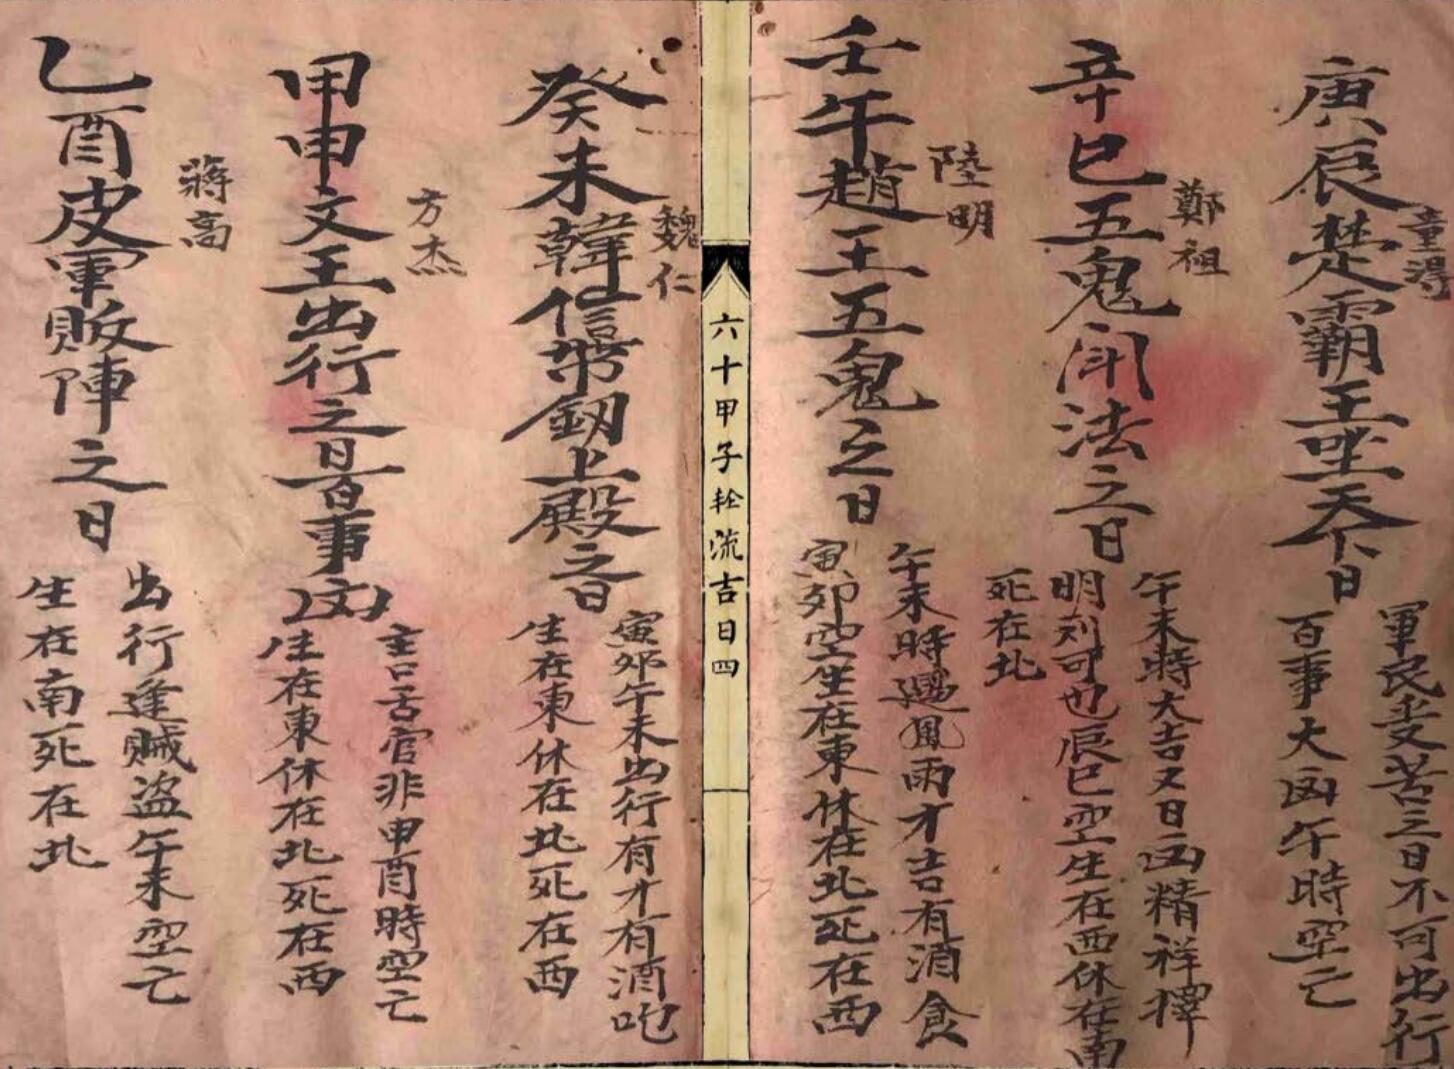 庚辰楚霸王坐天下日
童得
軍民受苦之日不可出行
百事大凶午時空亡
辛巳五鬼闹法之日
鄭祖
午未時大吉又日凶精祥擇
明列可也辰巳空生在西休在南
死在北
壬午趙王五鬼之日
陸明
午未時遇風雨才吉有酒食
寅夘空生在東休在北死在西
六十甲子轮流吉日四
癸未韓信帶劔上殿之日
魏仁
寅夘午未出行有才有酒吃
生在東休在北死在西
甲申文王出行之日百事凶
方杰
主口舌官非申酉時空亡
生在東休在北死在西
乙酉皮軍敗陣之日
蔣高
出行逢贼盗午未空亡
生在南死在北